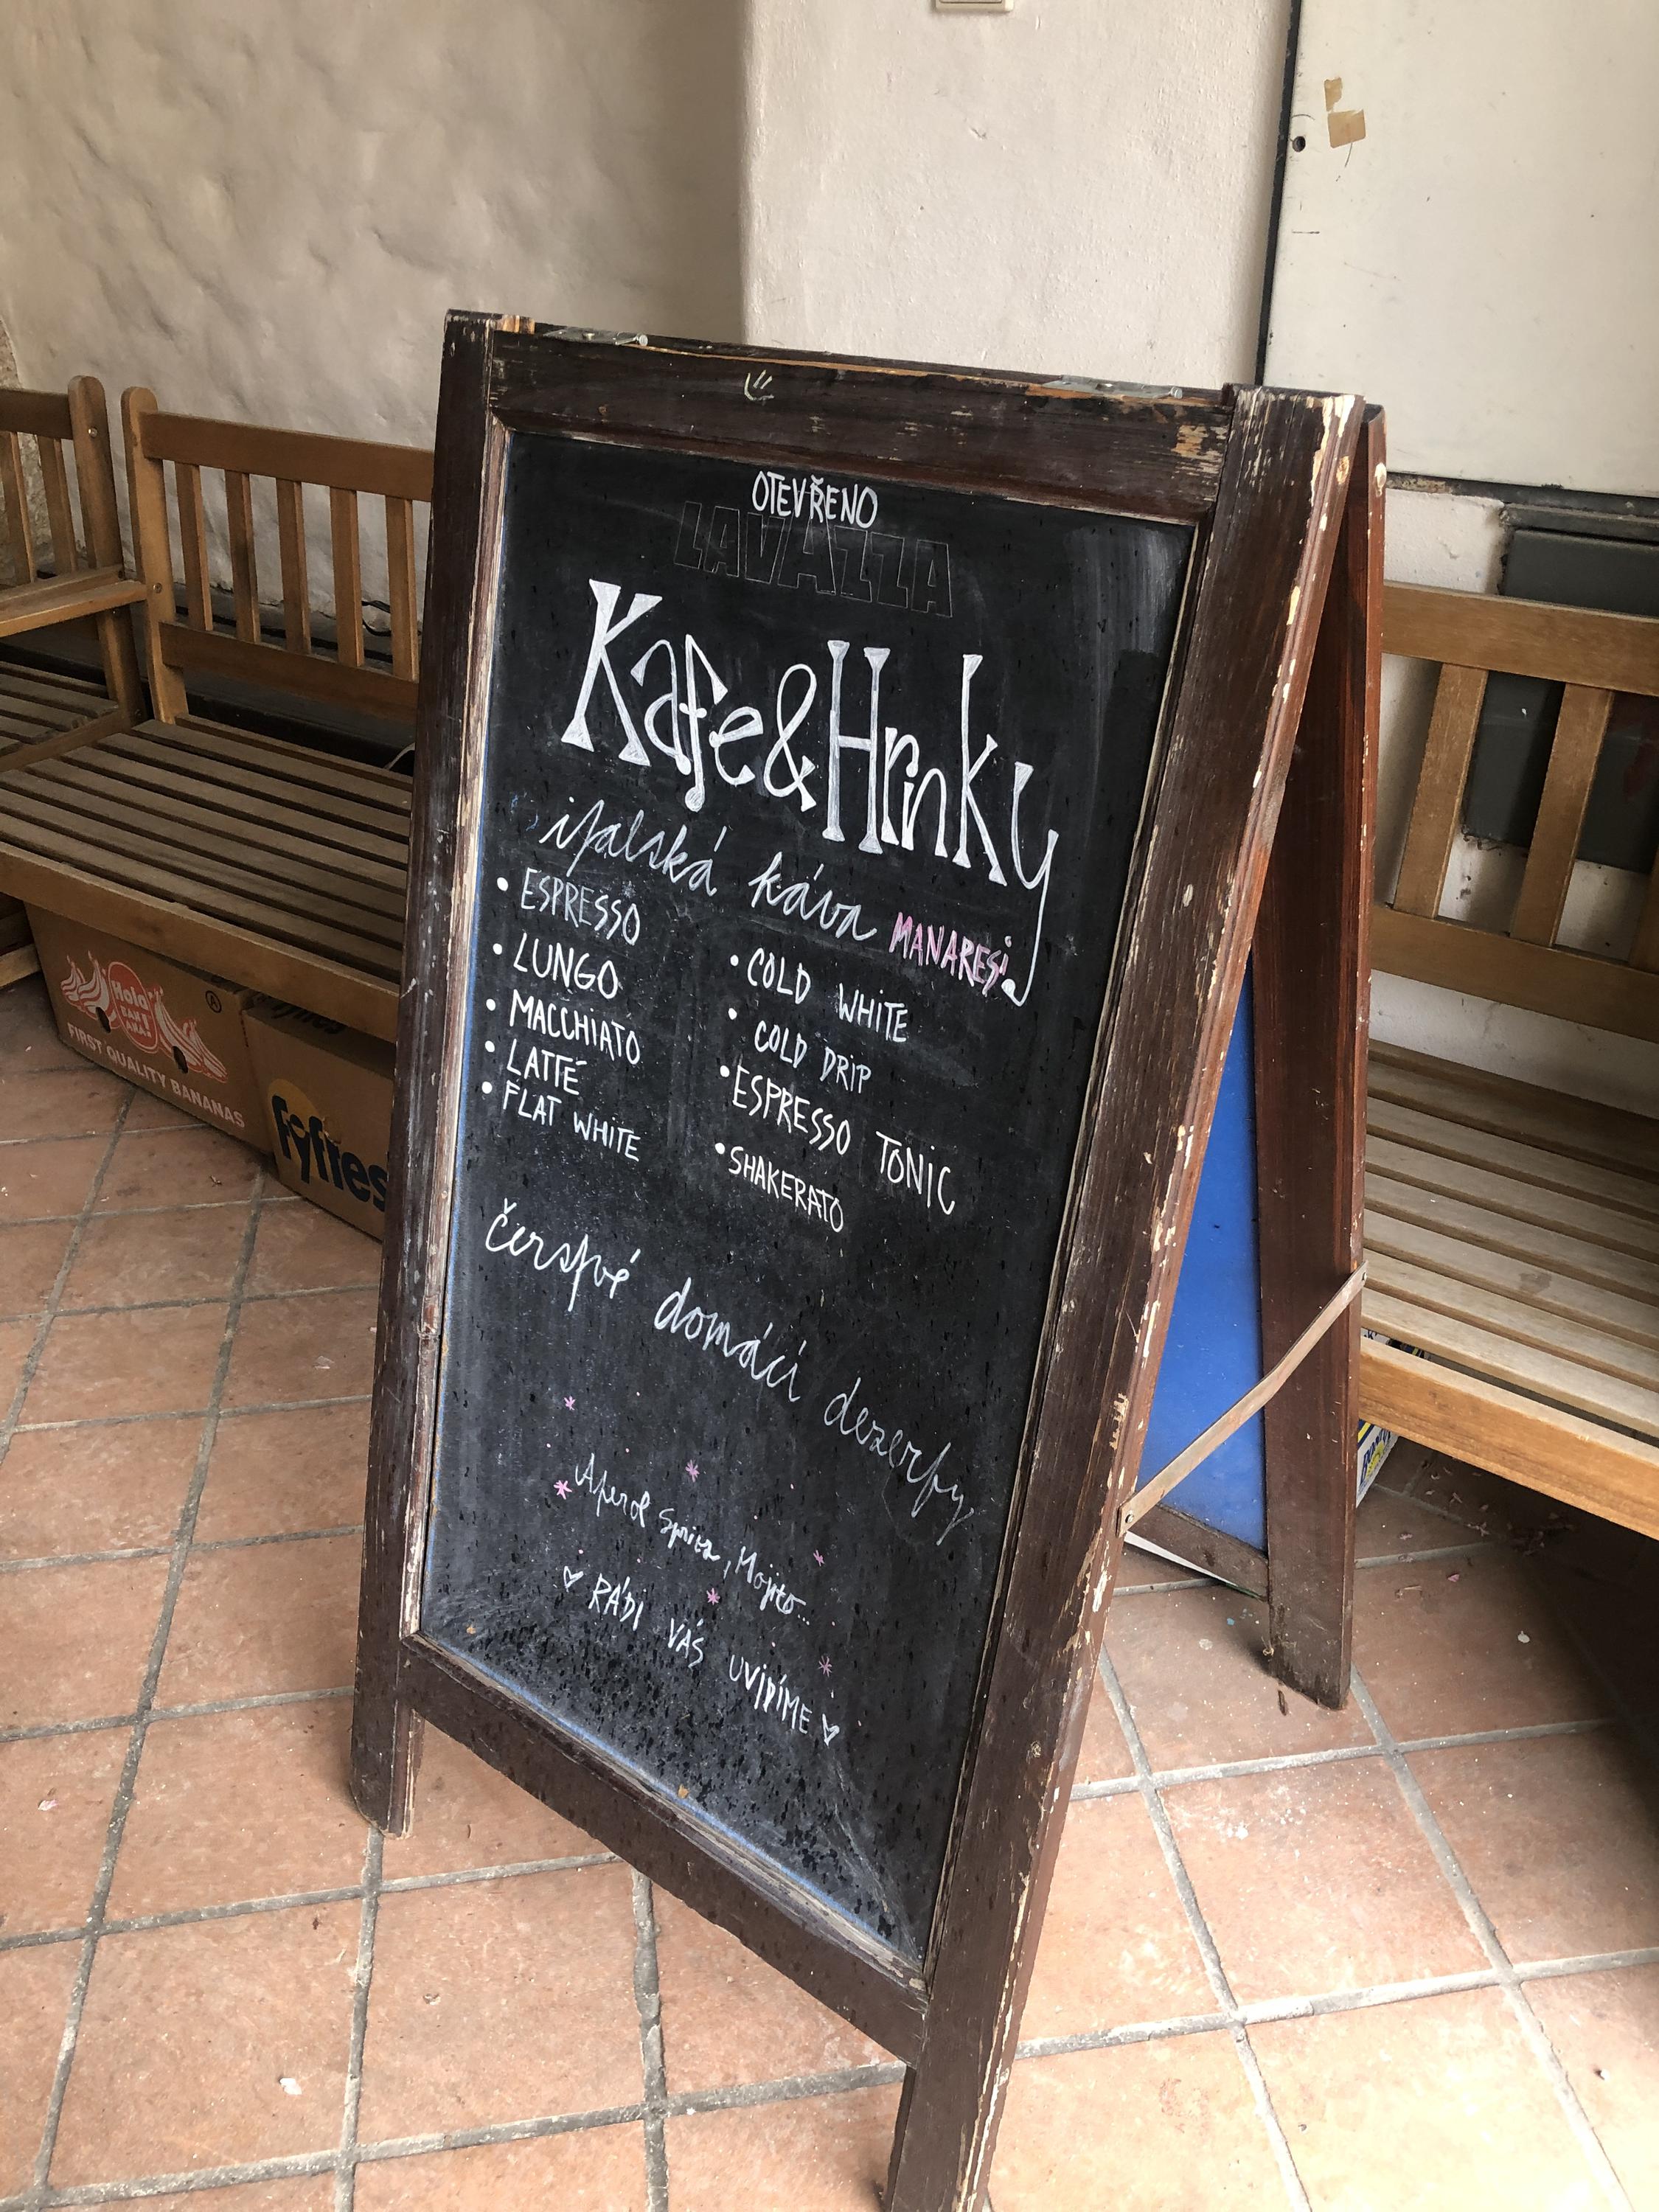 OTEVŘENO
LAVAZZA
Kafe&Hrnky
italská káva MANARESI
• ESPRESSO
• LUNGO
• MACCHIATO
• LATTÉ
• FLAT WHITE
• COLD WHITE
• COLD DRIP
• ESPRESSO TONIC
• SHAKERATO
čerstvé domácí dezerty
Aperol Spritz, Mojito...
♡ RÁDI VÁS UVIDÍME ♡
FIRST QUALITY BANANAS
fyffes